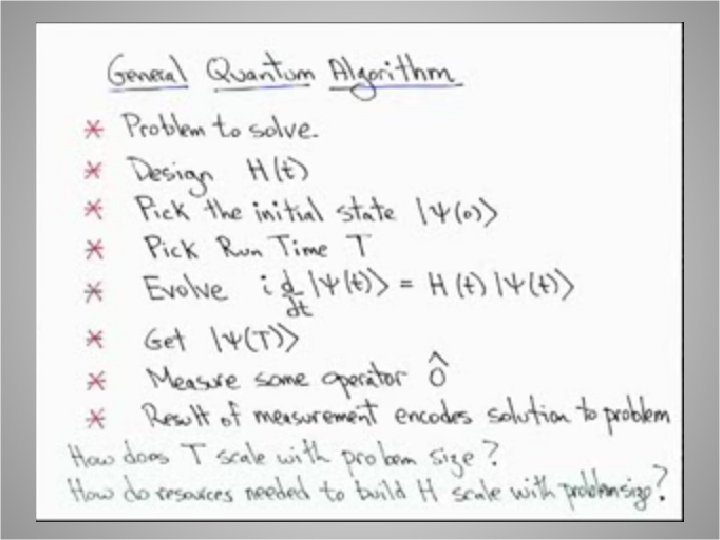 General Quantum Algorithm
* Problem to solve.
* Design H(t)
* Pick the initial state |Ψ(0)⟩
* Pick Run Time T
* Evolve i d/dt |Ψ(t)⟩ = H(t)|Ψ(t)⟩
* Get |Ψ(T)⟩
* Measure some operator Ô
* Result of measurement encodes solution to problem
How does T scale with probem size?
How do resources needed to build H scale with problem size?